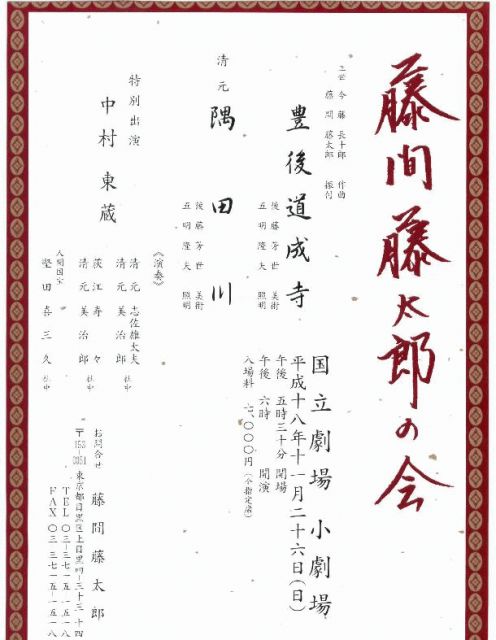 藤間藤太郎の会
三世 今藤長十郎 作曲
藤間藤太郎 振付
豊後道成寺
後藤芳世 美術
五明隆夫 照明
清元 隅田川
後藤芳世 美術
五明隆夫 照明
特別出演
中村東蔵
《演奏》
清元 志佐雄太夫
清元 美治郎 社中
荻江寿々
清元 美治郎 社中
人間国宝
堅田喜三久 社中
国立劇場 小劇場
平成十八年十一月二十六日(日)
午後 五時三十分 開場
午後 六時 開演
入場料 七、〇〇〇円(全指定席)
お問合せ 藤間藤太郎
〒153-0051 東京都目黒区上目黒四-三十三-十四
TEL 〇三-三七一五-五一八
FAX 〇三-三七一五-五一八